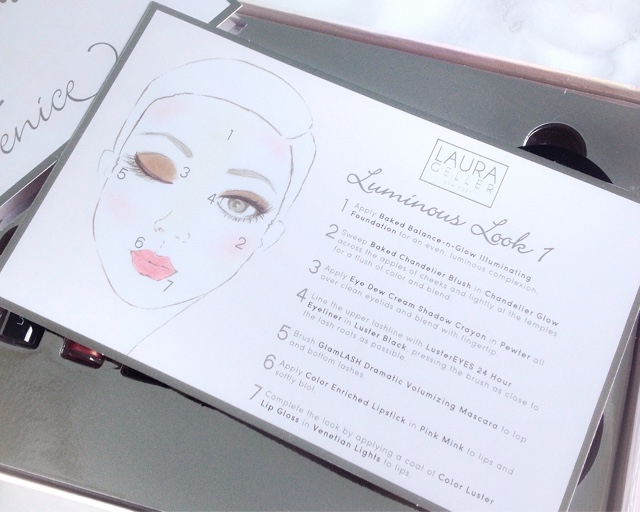 enice
1
5
3
4
2
6
7
LAURA
GELLER
Luminous Look 1
1 Apply Baked Balance-n-Glow Illuminating
Foundation for an even, luminous complexion
2 Sweep Baked Chandelier Blush in Chandelier Glow
across the apples of cheeks and lightly at the temples
for a flush of color and blend
3 Apply Eye Dew Cream Shadow Crayon in Pewter all
over clean eyelids and blend with fingertip
4 Line the upper lashline with LusterEYES 24 Hour
Eyeliner in Luster Black, pressing the brush as close to
the lash roots as possible
5 Brush GlamLASH Dramatic Volumizing Mascara to top
and bottom lashes
6 Apply Color Enriched Lipstick in Pink Mink to lips and
softly blot.
7 Complete the look by applying a coat of Color Luster
Lip Gloss in Venetian Lights to lips.